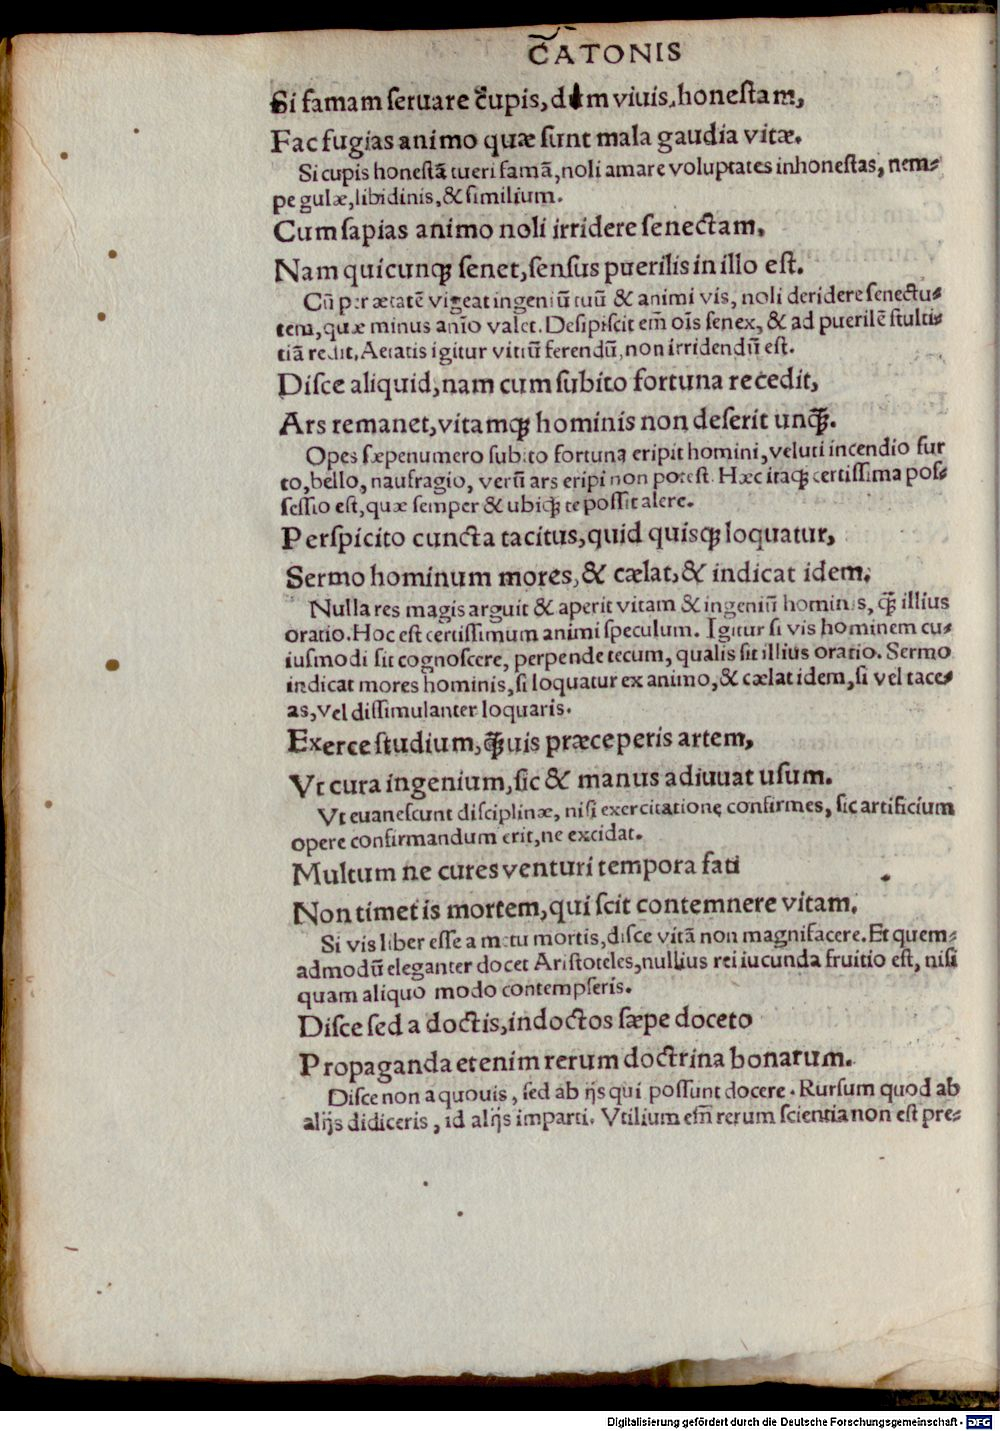 CATONIS
Si famam seruare cupis, dum viuis, honestam,
Fac fugias animo quæ sunt mala gaudia vitæ.
Si cupis honestã tueri famã, noli amare voluptates inhonestas, nem-
pe gulæ, libidinis, & similium.
Cum sapias animo noli irridere senectam.
Nam quicunqꝫ senet, sensus puerilis in illo est.
Cũ per ætatẽ vigeat ingeniũ tuũ & animi vis, noli deridere senectu-
tem, quæ minus anĩo valet. Desipiscit em̃ oĩs senex, & ad puerilẽ stulti-
tiã redit. Aetatis igitur vitiũ ferendũ, non irridendũ est.
Disce aliquid, nam cum subito fortuna recedit,
Ars remanet, vitamqꝫ hominis non deserit unq̃ꝫ.
Opes sæpenumero subito fortuna eripit homini, veluti incendio fur
to, bello, naufragio, verũ ars eripi non potest. Hæc itaqꝫ certissima pos-
sessio est, quæ semper & ubiqꝫ te possit alere.
Perspicito cuncta tacitus, quid quisqꝫ loquatur,
Sermo hominum mores, & cælat, & indicat idem.
Nulla res magis arguit & aperit vitam & ingeniũ hominis, q̃ꝫ illius
oratio. Hoc est certissimum animi speculum. Igitur si vis hominem cu-
iusmodi sit cognoscere, perpende tecum, qualis sit illius oratio. Sermo
indicat mores hominis, si loquatur ex animo, & cælat idem, si vel tace-
as, vel dissimulanter loquaris.
Exerce studium, q̃ꝫuis præceperis artem,
Vt cura ingenium, sic & manus adiuuat usum.
Vt euanescunt disciplinæ, nisi exercitationę confirmes, sic artificium
opere confirmandum erit, ne excidat.
Multum ne cures venturi tempora fati
Non timet is mortem, qui scit contemnere vitam.
Si vis liber esse a metu mortis, disce vitã non magnifacere. Et quem-
admodũ eleganter docet Aristoteles, nullius rei iucunda fruitio est, nisi
quam aliquo modo contempseris.
Disce sed a doctis, indoctos sæpe doceto
Propaganda etenim rerum doctrina bonarum.
Disce non a quouis, sed ab ijs qui possunt docere. Rursum quod ab
alijs didiceris, id alijs imparti. Vtilium em̃ rerum scientia non est pre-
Digitalisierung gefördert durch die Deutsche Forschungsgemeinschaft - DFG